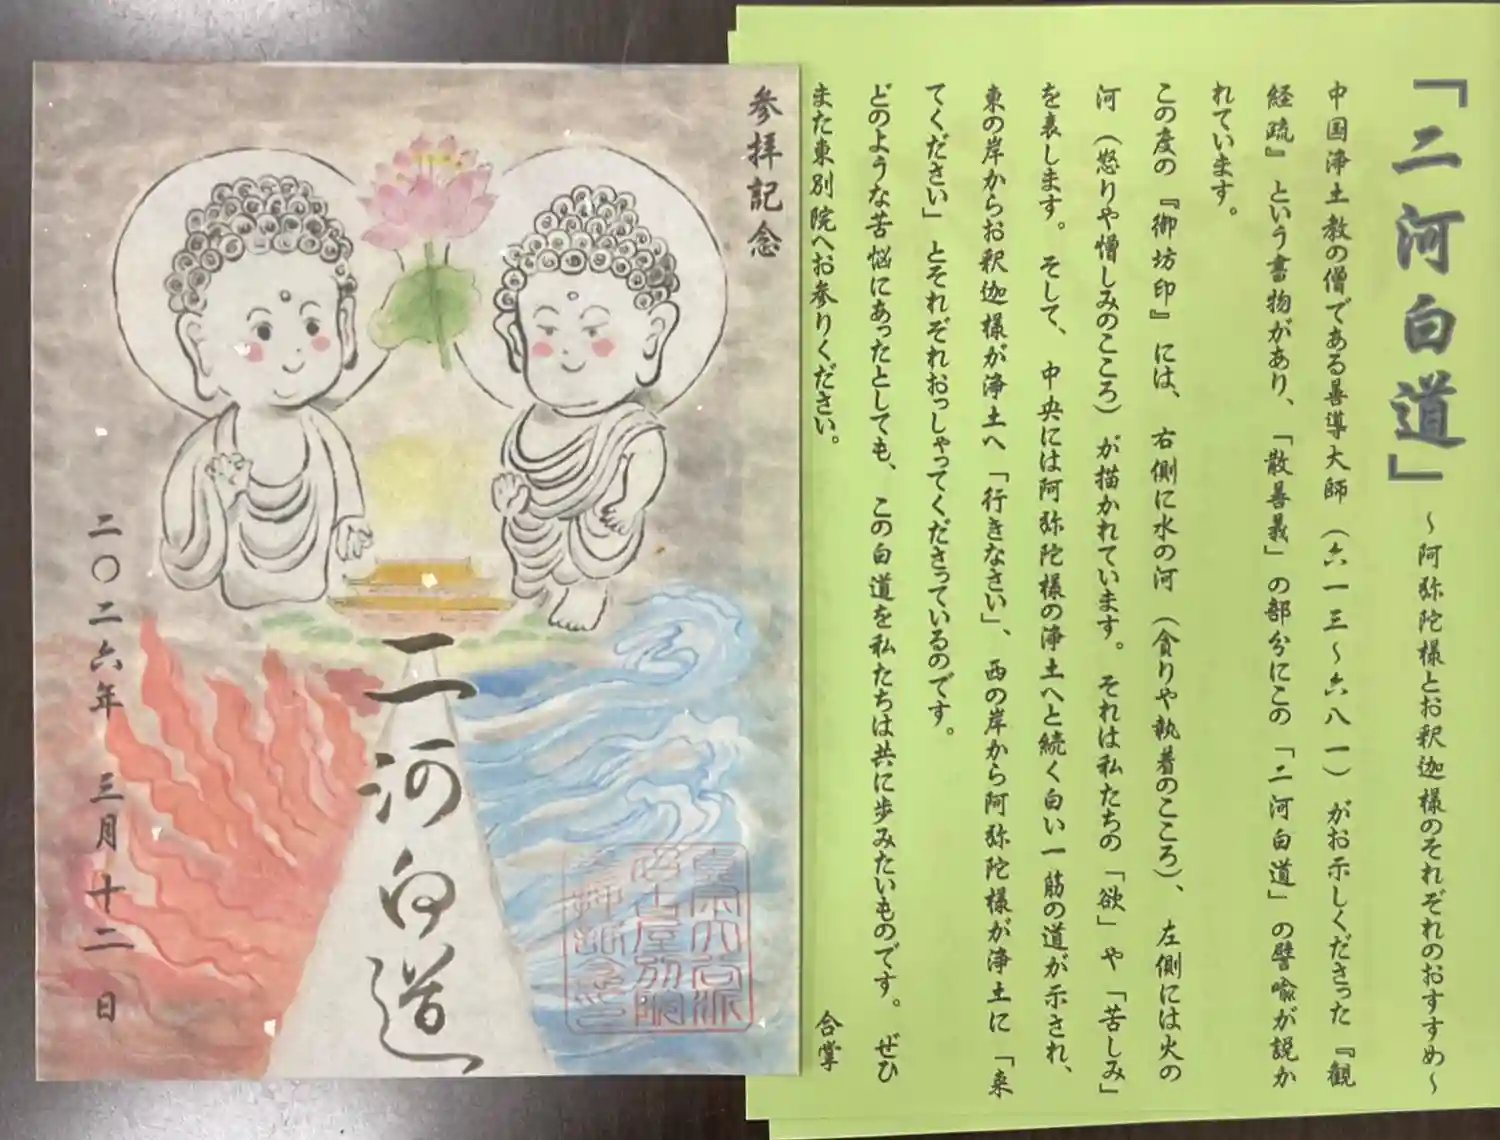 「二河白道」 ～阿弥陀様とお釈迦様のそれぞれのおすすめ～
中国浄土教の僧である善導大師（六一三～六八一）がお示しくださった『観
経疏』という書物があり、「散善義」の部分にこの「二河白道」の譬喩が説か
れています。
この度の『御坊印』には、右側に水の河（貪りや執着のこころ）、左側には火の
河（怒りや憎しみのこころ）が描かれています。それは私たちの「欲」や「苦しみ」
を表します。そして、中央には阿弥陀様の浄土へと続く白い一筋の道が示され、
東の岸からお釈迦様が浄土へ「行きなさい」、西の岸から阿弥陀様が浄土に「来
てください」とそれぞれおっしゃってくださっているのです。
どのような苦悩にあったとしても、この白道を私たちは共に歩みたいものです。ぜひ
また東別院へお参りください。 合掌
参拝記念
二河白道
二〇二六年 三月十二日